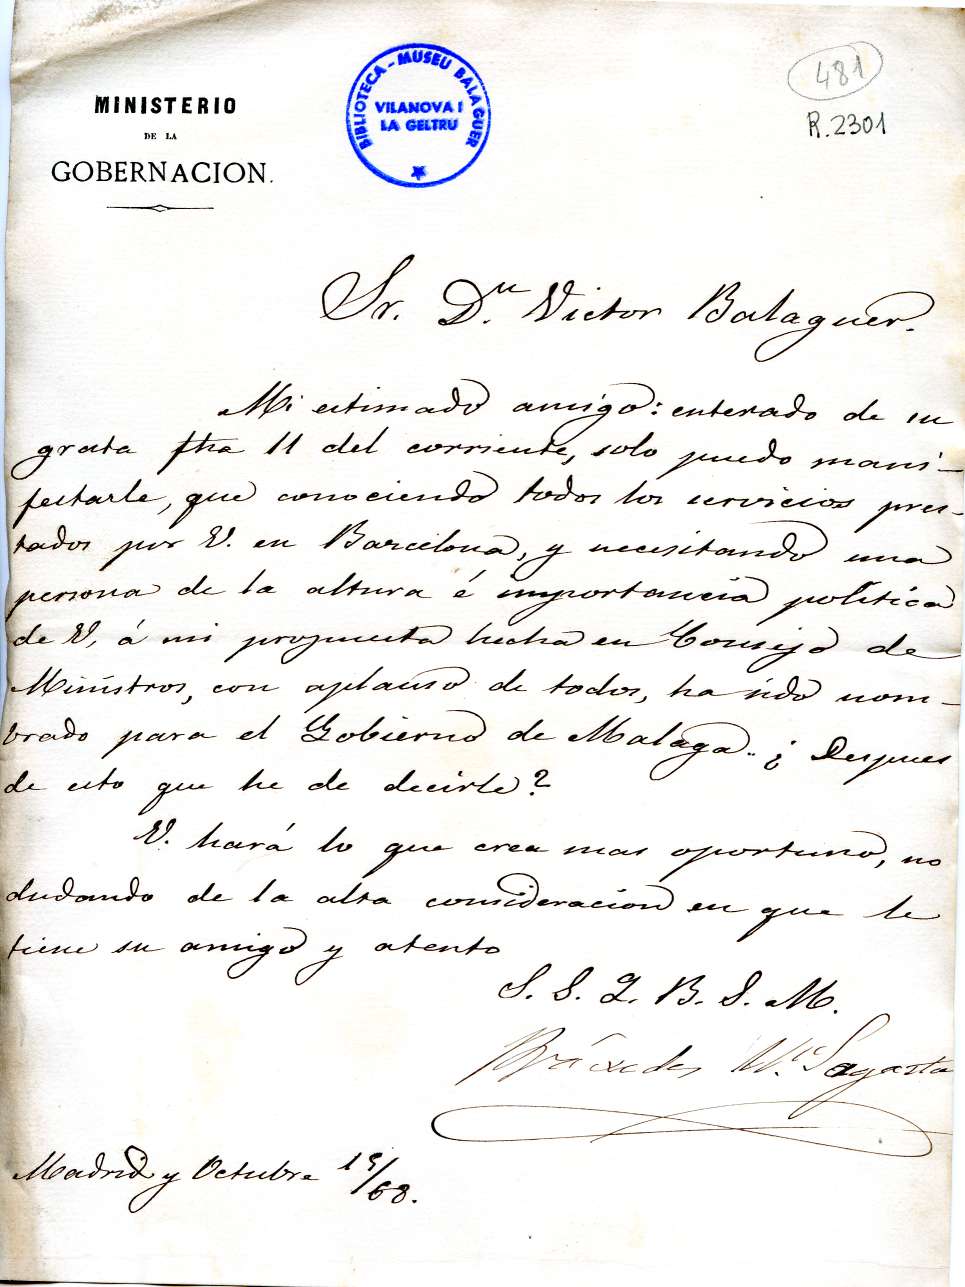 MINISTERIO
DE LA
GOBERNACION.
BIBLIOTECA - MUSEU BALAGUER
VILANOVA I
LA GELTRU
481
R.2301
Sr. Dn. Victor Balaguer.
Mi estimado amigo: enterado de su
grata fha 11 del corriente, solo puedo mani-
festarle, que conociendo todos los servicios pres-
tados por V. en Barcelona, y necesitando una
persona de la altura é importancia política
de V, á mi propuesta hecha en Consejo de
Ministros, con aplauso de todos, ha sido nom-
brado para el Gobierno de Malaga. ¿Despues
de esto que he de decirle?
V. hará lo que crea mas oportuno, no
dudando de la alta consideracion en que le
tiene su amigo y atento
S. S. Q. B. S. M.
Práxedes M. Sagasta
Madrid y Octubre /68.